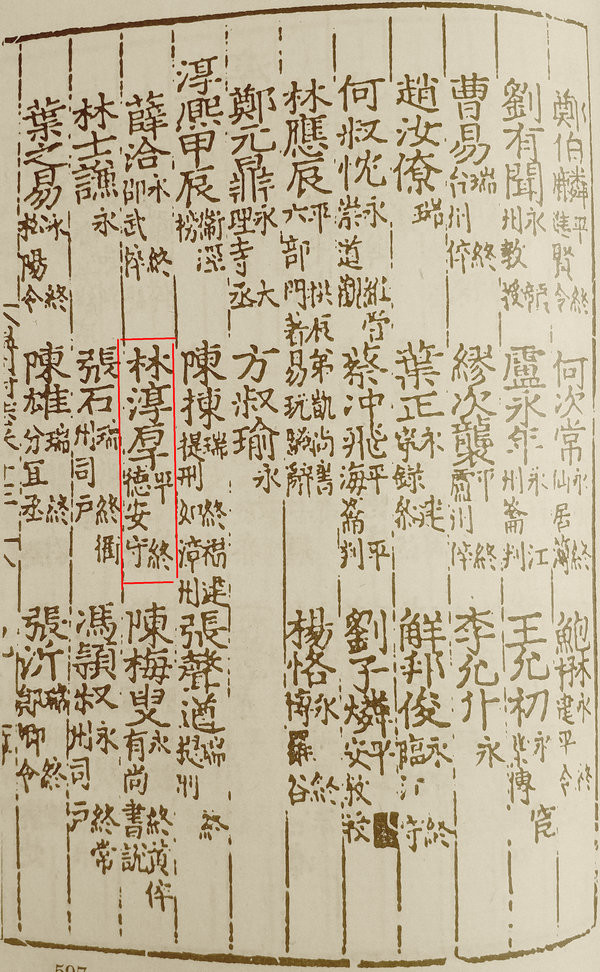 鄭伯麟平終進賢令 何次常永終仙居簿 鮑朴永終建平令
劉有聞永龍州教授 盧永年永江州簽判 王允初永
曹易瑞終台州倅 繆次襲終州倅 李允升永
趙汝僚瑞 葉正永建寧錄參 鮮邦俊永終臨江守
何叔忱永崇道觀 蔡冲飛平海簽判 劉子燐平安教授
林應辰平六部門著易玩辭 楊恪永終博羅
鄭元鼎永大理寺丞 方淑瑜永
淳熙甲辰衛涇榜 陳揀瑞終福建提刑知漳州 張聲道瑞終提刑
薛洽永終邵武倅 林淳厚平終德安守 陳梅叟永終黃倅有尚書說
林士謙永 張石瑞終衢州司戶 馮叔永終常州司戶
葉之易永終松陽令 陳雄瑞終分宜丞 張沂瑞終令
597